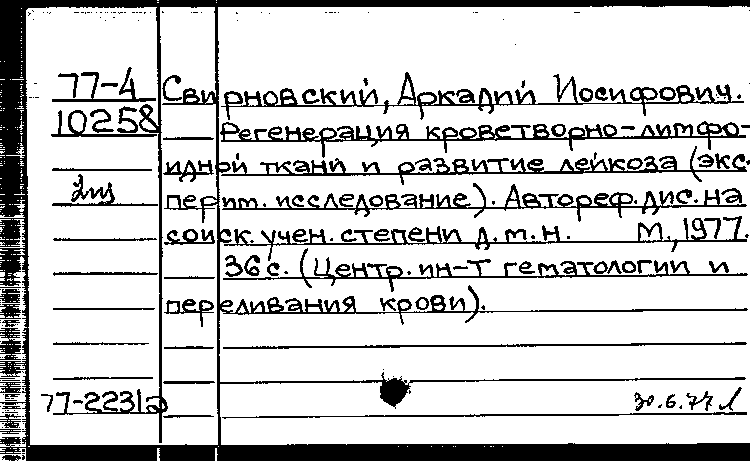 77-4 Свирновский, Аркадий Иосифович.
10258 Регенерация кроветворно-лимфо-
идной ткани и развитие лейкоза (экс-
перим. исследование). Автореф. дис. на
соиск. учен. степени д.м.н. М., 1977.
36 с. (Центр. ин-т гематологии и
переливания крови).
77-2231а 30.6.77